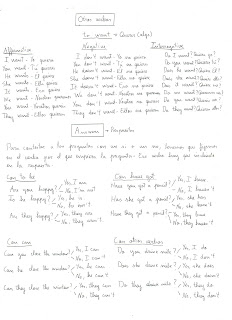 Other verbs
to want → Querer (algo)
Affirmative Negative Interrogative
I want - Yo quiero I don't want - Yo no quiero Do I want? ¿Quiero yo?
You want - Tú quieres You don't want - Tú no quieres Do you want? ¿Quieres tú?
He wants - Él quiere He doesn't want - Él no quiere Does he want? ¿Quiere él?
She wants - Ella quiere She doesn't want - Ella no quiere Does she want? ¿Quiere ella?
It wants - quiere It doesn't want - no quiere Does it want? ¿Quiere
We want - Nosotros queremos We don't want - Nosotros no queremos Do we want?
You want - Vosotros queréis You don't want - Vosotros no queréis Do you want?
They want - Ellos quieren They don't want - Ellos no quieren Do they want?
Answers → Respuestas
Para contestar a las preguntas con un sí o un no, tenemos que fijarnos
en el verbo por el que empieza la pregunta. Ese verbo hay que usarlo
en la respuesta.
Con to be Con have got
Are you happy? Yes, I am Have you got a pencil? Yes, I have
No, I'm not No, I haven't
Is he happy? Yes, he is Has she got a pencil? Yes, she has
No, he isn't No, she hasn't
Are they happy? Yes, they are Have they got a pencil? Yes, they have
No, they aren't No, they haven't
Con can Con otros verbos
Can you close the window? Yes, I can Do you dance male? Yes, I do
No, I can't No, I don't
Can he close the window? Yes, he can Does she dance male? Yes, she does
No, he can't No, she doesn't
Can they close the window? Yes, they can Do they dance male? Yes, they do
No, they can't No, they don't